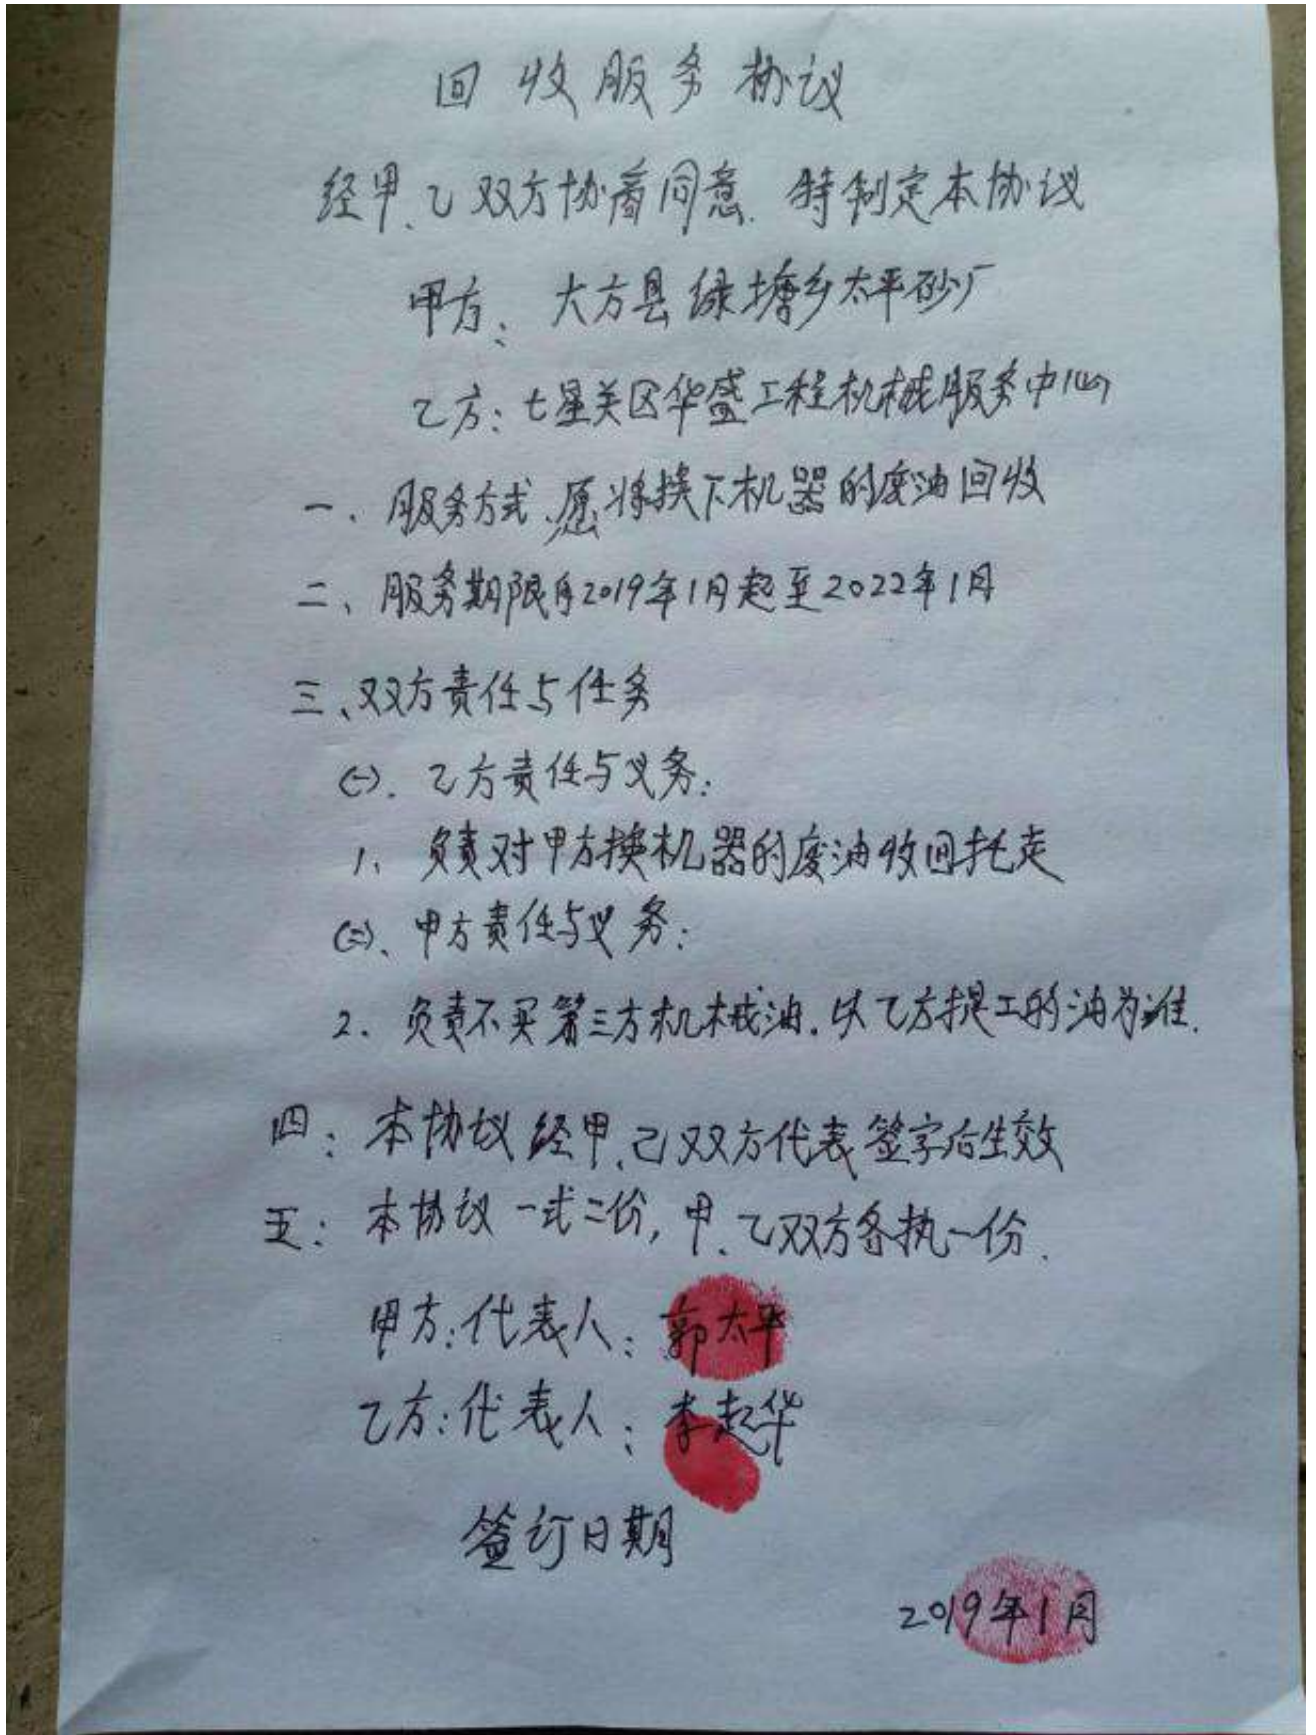 回收服务协议
经甲、乙双方协商同意.特制定本协议
甲方:大方县绿塘乡太平砂厂
乙方:七星关区华盛工程机械服务中心
一、服务方式、愿将换下机器的废油回收
二、服务期限自2019年1月起至2022年1月
三、双方责任与任务
(一).乙方责任与义务:
1、负责对甲方换机器的废油收回托走
(二)、甲方责任与义务:
2、负责不买第三方机械油.以乙方提工的油为准.
四:本协议经甲、乙双方代表签字后生效
五:本协议一式二份,甲、乙双方各执一份.
甲方:代表人:郭太平
乙方:代表人:李起华
签订日期
2019年1月